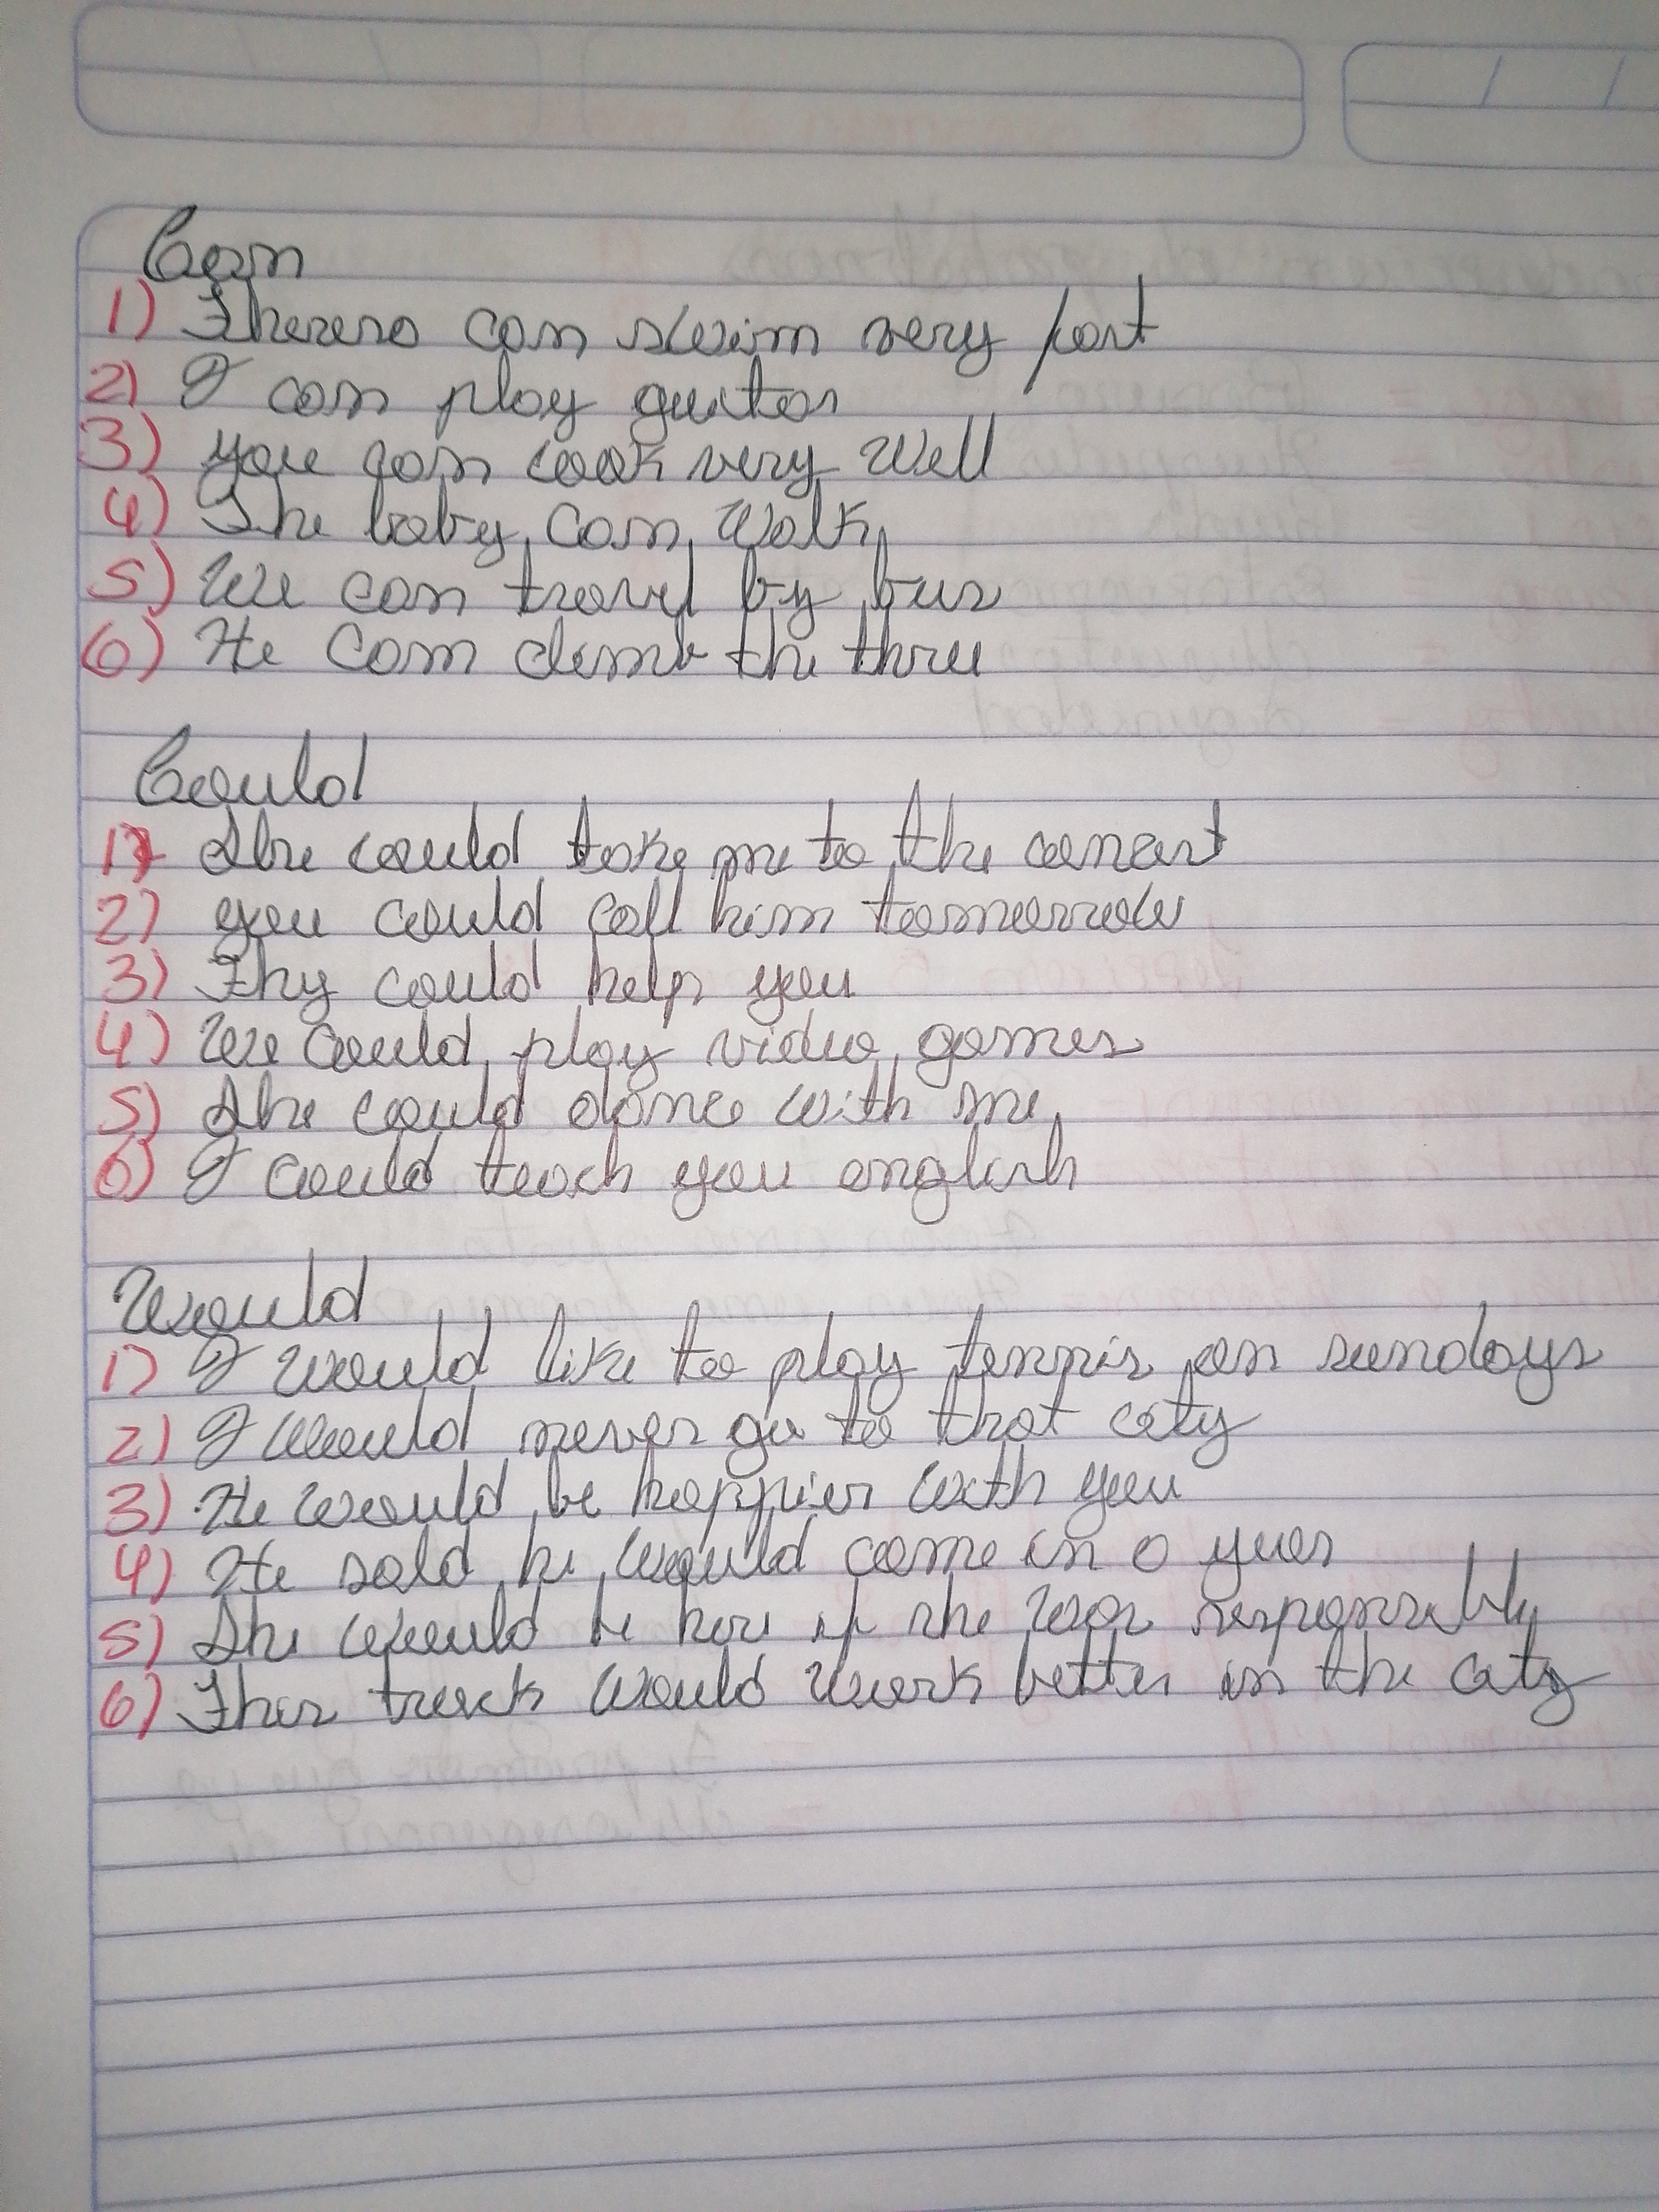 Can
1) Thereza can swim very fast
2) I can play guitar
3) you can cook very well
4) The baby can walk
5) We can travel by bus
6) He can climb the three
Could
1) She could take me to the concert
2) you could call him tomorrow
3) Thy could help you
4) We could play video games
5) She could dance with me
6) I could teach you english
Would
1) I would like to play tennis on sundays
2) I would never go to that city
3) He would be happier with you
4) He sald he would come in a year
5) She would be here if she was responsably
6) This truck would work better in the city